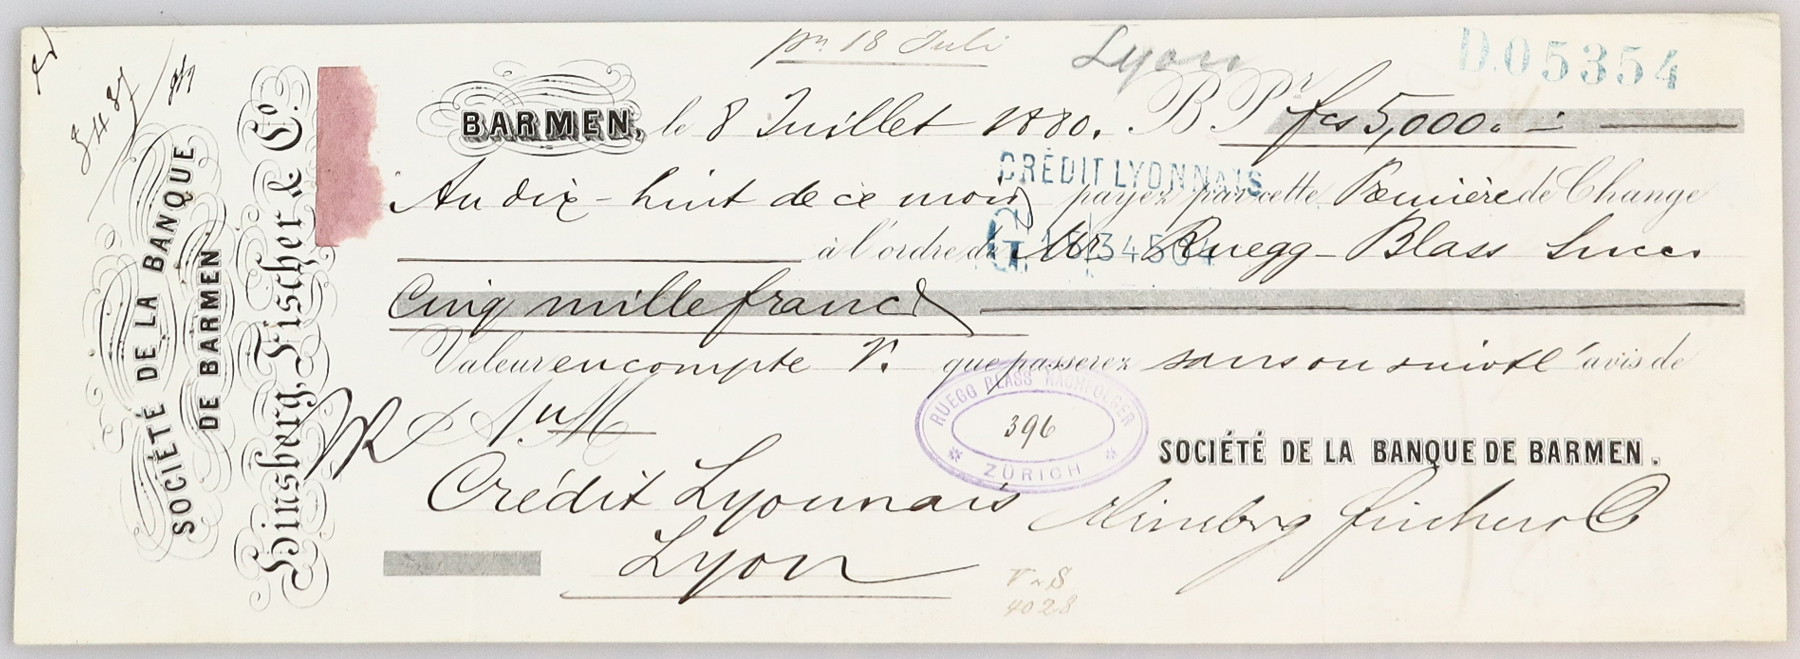 pn 18 Juli
Lyon
D.05354
BARMEN, le 8 Juillet 1880. B. Pr. fcs 5,000. –
CRÉDIT LYONNAIS
Au dix-huit de ce mois payez par cette Première de Change
à l'ordre de Mr. Ruegg-Blass Succ.
Cinq mille francs
Valeur en compte que passerez sans ou suivt l'avis de
RUEGG BLASS NACHFOLGER
396
ZÜRICH
Crédit Lyonnais
Lyon
SOCIÉTÉ DE LA BANQUE DE BARMEN.
Hinsberg Fischer & Co
4028
SOCIÉTÉ DE LA BANQUE
DE BARMEN
Hinsberg, Fischer & Co.